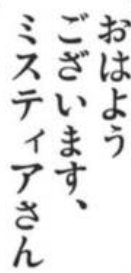 おはよう
ございます、
ミスティアさん